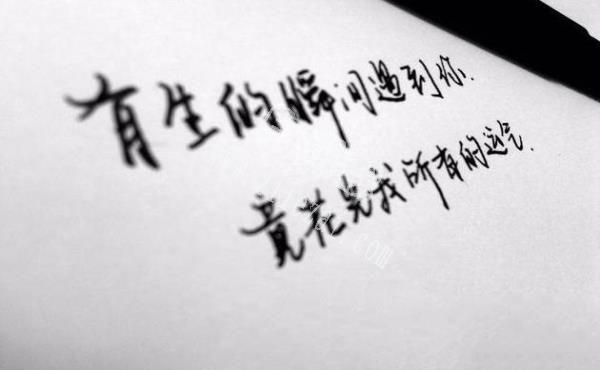 有生的瞬间遇到你.
竟花光我所有的运气.